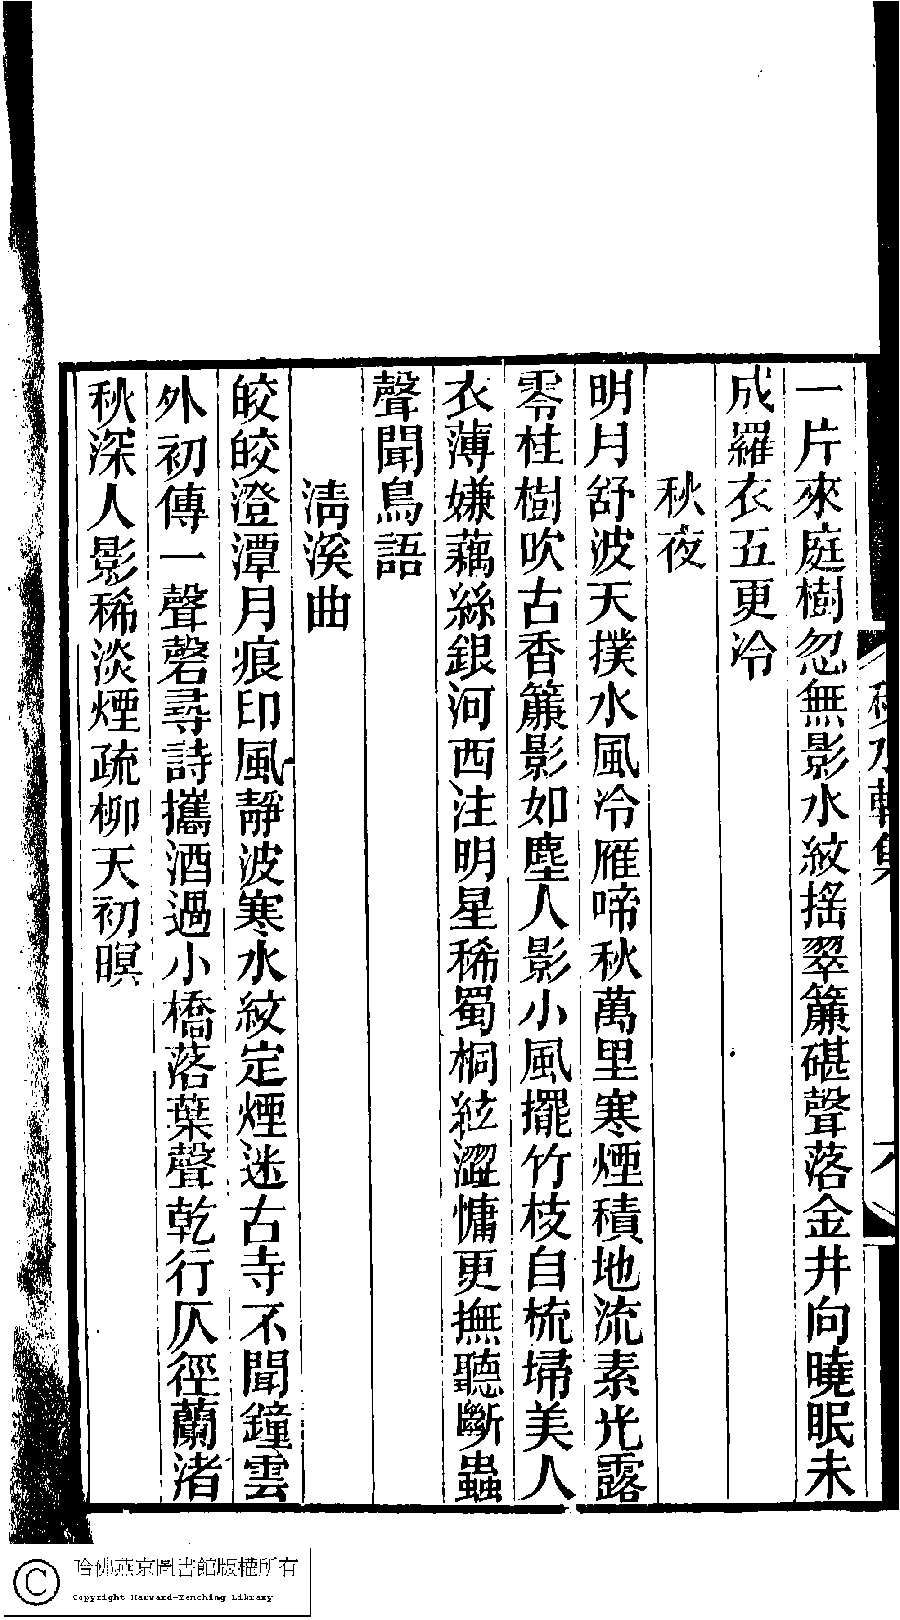 一片來庭樹忽無影水紋搖翠簾碪聲落金井向曉眠未
成羅衣五更冷
秋夜
明月舒波天撲水風冷雁啼秋萬里寒煙積地流素光露
零桂樹吹古香簾影如塵人影小風擺竹枝自梳埽美人
衣薄嫌藕絲銀河西注明星稀蜀桐絃澀慵更撫聽斷蟲
聲聞鳥語
淸溪曲
皎皎澄潭月痕印風靜波寒水紋定煙迷古寺不聞鐘雲
外初傳一聲磬尋詩攜酒過小橋落葉聲乾行仄徑蘭渚
秋深人影稀淡煙疏柳天初暝
哈佛燕京圖書館版權所有
Copyright Harvard-Yenching Library